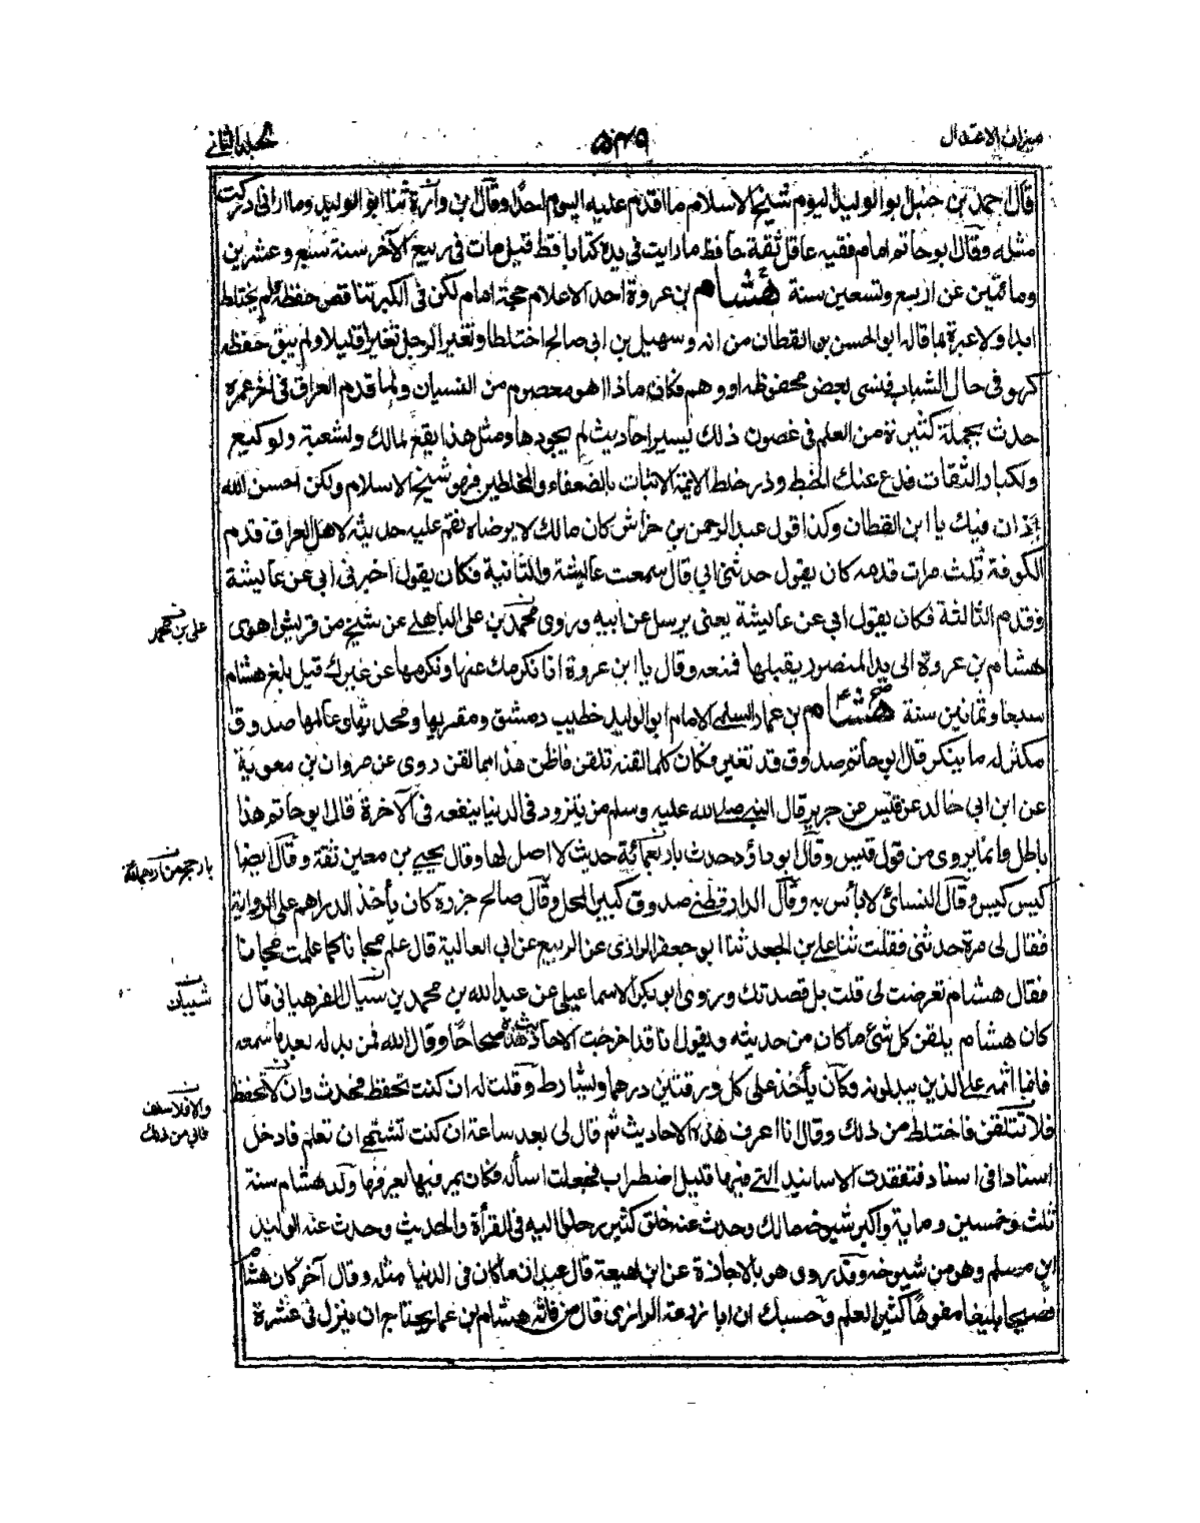 ميزان الاعتدال
المجلد الثاني
قال احمد بن حنبل ابو الوليد اليوم شيخ الاسلام ما اقدم عليه اليوم احدا وقال ابن وارة ثنا ابو الوليد وما اراني ادركت
مثله وقال ابو حاتم امام فقيه عاقل ثقة حافظ ما رايت في يده كتابا قط قيل مات في ربيع الآخر سنة سبع وعشرين
ومائتين عن اربع وتسعين سنة هشام بن عروة احد الاعلام حجة امام لكن في الكبر تناقص حفظه ولم يختلط
ابدا ولا عبرة بما قاله ابو الحسن بن القطان من انه وسهيل بن ابي صالح اختلطا وتغيرا الرجل تغير قليلا ولم يبق حفظه
كهو في حال الشباب فنسى بعض محفوظه او وهم فكان ماذا اهو معصوم من النسيان ولما قدم العراق في آخر عمره
حدث بجملة كثيرة من العلم في غصون ذلك يسير احاديث لم يجودها ومثل هذا يقع لمالك ولشعبة ولوكيع
ولكبار الثقات فدع عنك الخبط وذر خلط الائمة الاثبات بالضعفاء والمخلطين فهو شيخ الاسلام ولكن احسن الله
عزانا فيك يا ابن القطان وكذا قول عبد الرحمن بن خراش كان مالك لا يرضاه نقم عليه حديثه لاهل العراق قدم
الكوفة ثلث مرات قدمه كان يقول حدثني ابي قال سمعت عايشة والثانية فكان يقول اخبرني ابي عن عايشة
وقدم الثالثة فكان يقول ابي عن عايشة يعني يرسل عن ابيه وروى محمد بن علي الباهلي عن شيخ من قريش اهوى
علي بن محمد
هشام بن عروة الى يد المنصور يقبلها فمنعه وقال يا ابن عروة انا نكرمك عنها ونكرمها عن غيرك قيل بلغ هشام
سبعا وثمانين سنة هشام بن عمار السلمي الامام ابو الوليد خطيب دمشق ومقريها ومحدثها وعالمها صدوق
مكثر له ما ينكر قال ابو حاتم صدوق قد تغير فكان كلما لقنه تلقن فاظن هذا مما لقن روى عن مروان بن معوية
عن ابن ابي خالد عن قيس عن جرير قال النبي صلى الله عليه وسلم من يتزود في الدنيا ينفعه في الآخرة قال ابو حاتم هذا
باطل وانما يروى من قول قيس وقال ابو داؤد حدث باربعمائة حديث لا اصل لها وقال يحيى بن معين ثقة وقال ايضا
كيس كيس وقال النسائي لا باس به وقال الدارقطني صدوق كبير المحل وقال صالح جزرة كان يأخذ الدراهم على الرواية
فقال لي مرة حدثني فقلت ثنا علي بن الجعد ثنا ابو جعفر الرازي عن الربيع عن ابي العالية قال علم مجانا كما علمت مجانا
فقال هشام تعرضت لي قلت بل قصدتك وروى ابو بكر الاسماعيلي عن عبد الله بن محمد بن سيار الفرهياني قال
كان هشام يلقن كل شئ ما كان من حديثه ويقول انا قد اخرجت الاحاديث هذه صحاحا وقال الله فمن بدله بعد ما سمعه
فانما اثمه على الذين يبدلونه وكان يأخذ على كل ورقتين درهما ويشارط وقلت له ان كنت تحفظ فحدث وان لا تحفظ
والا فلا
من ذلك
فلا تتلقن فاختلط من ذلك وقال انا اعرف هذه الاحاديث ثم قال لي بعد ساعة ان كنت تشتهي ان تعلم فادخل
اسنادا في اسناد فتفقدت الاسانيد التي فيها قليل اضطراب فجعلت اسأله فكان يمر فيها يعرفها ولد هشام سنة
ثلث وخمسين وماية واكبر شيوخه مالك وحدث عنه خلق كثير رحلوا اليه في القرأة والحديث وحدث عنه الوليد
ابن مسلم وهو من شيوخه وقد روى هو بالاجازة عن ابن لهيعة قال عبدان ما كان في الدنيا مثله وقال آخر كان هشام
فصيحا بليغا مفوها كثير العلم وحسبك ان ابا زرعة الرازي قال من فاته هشام بن عمار يحتاج ان ينزل في عشرة